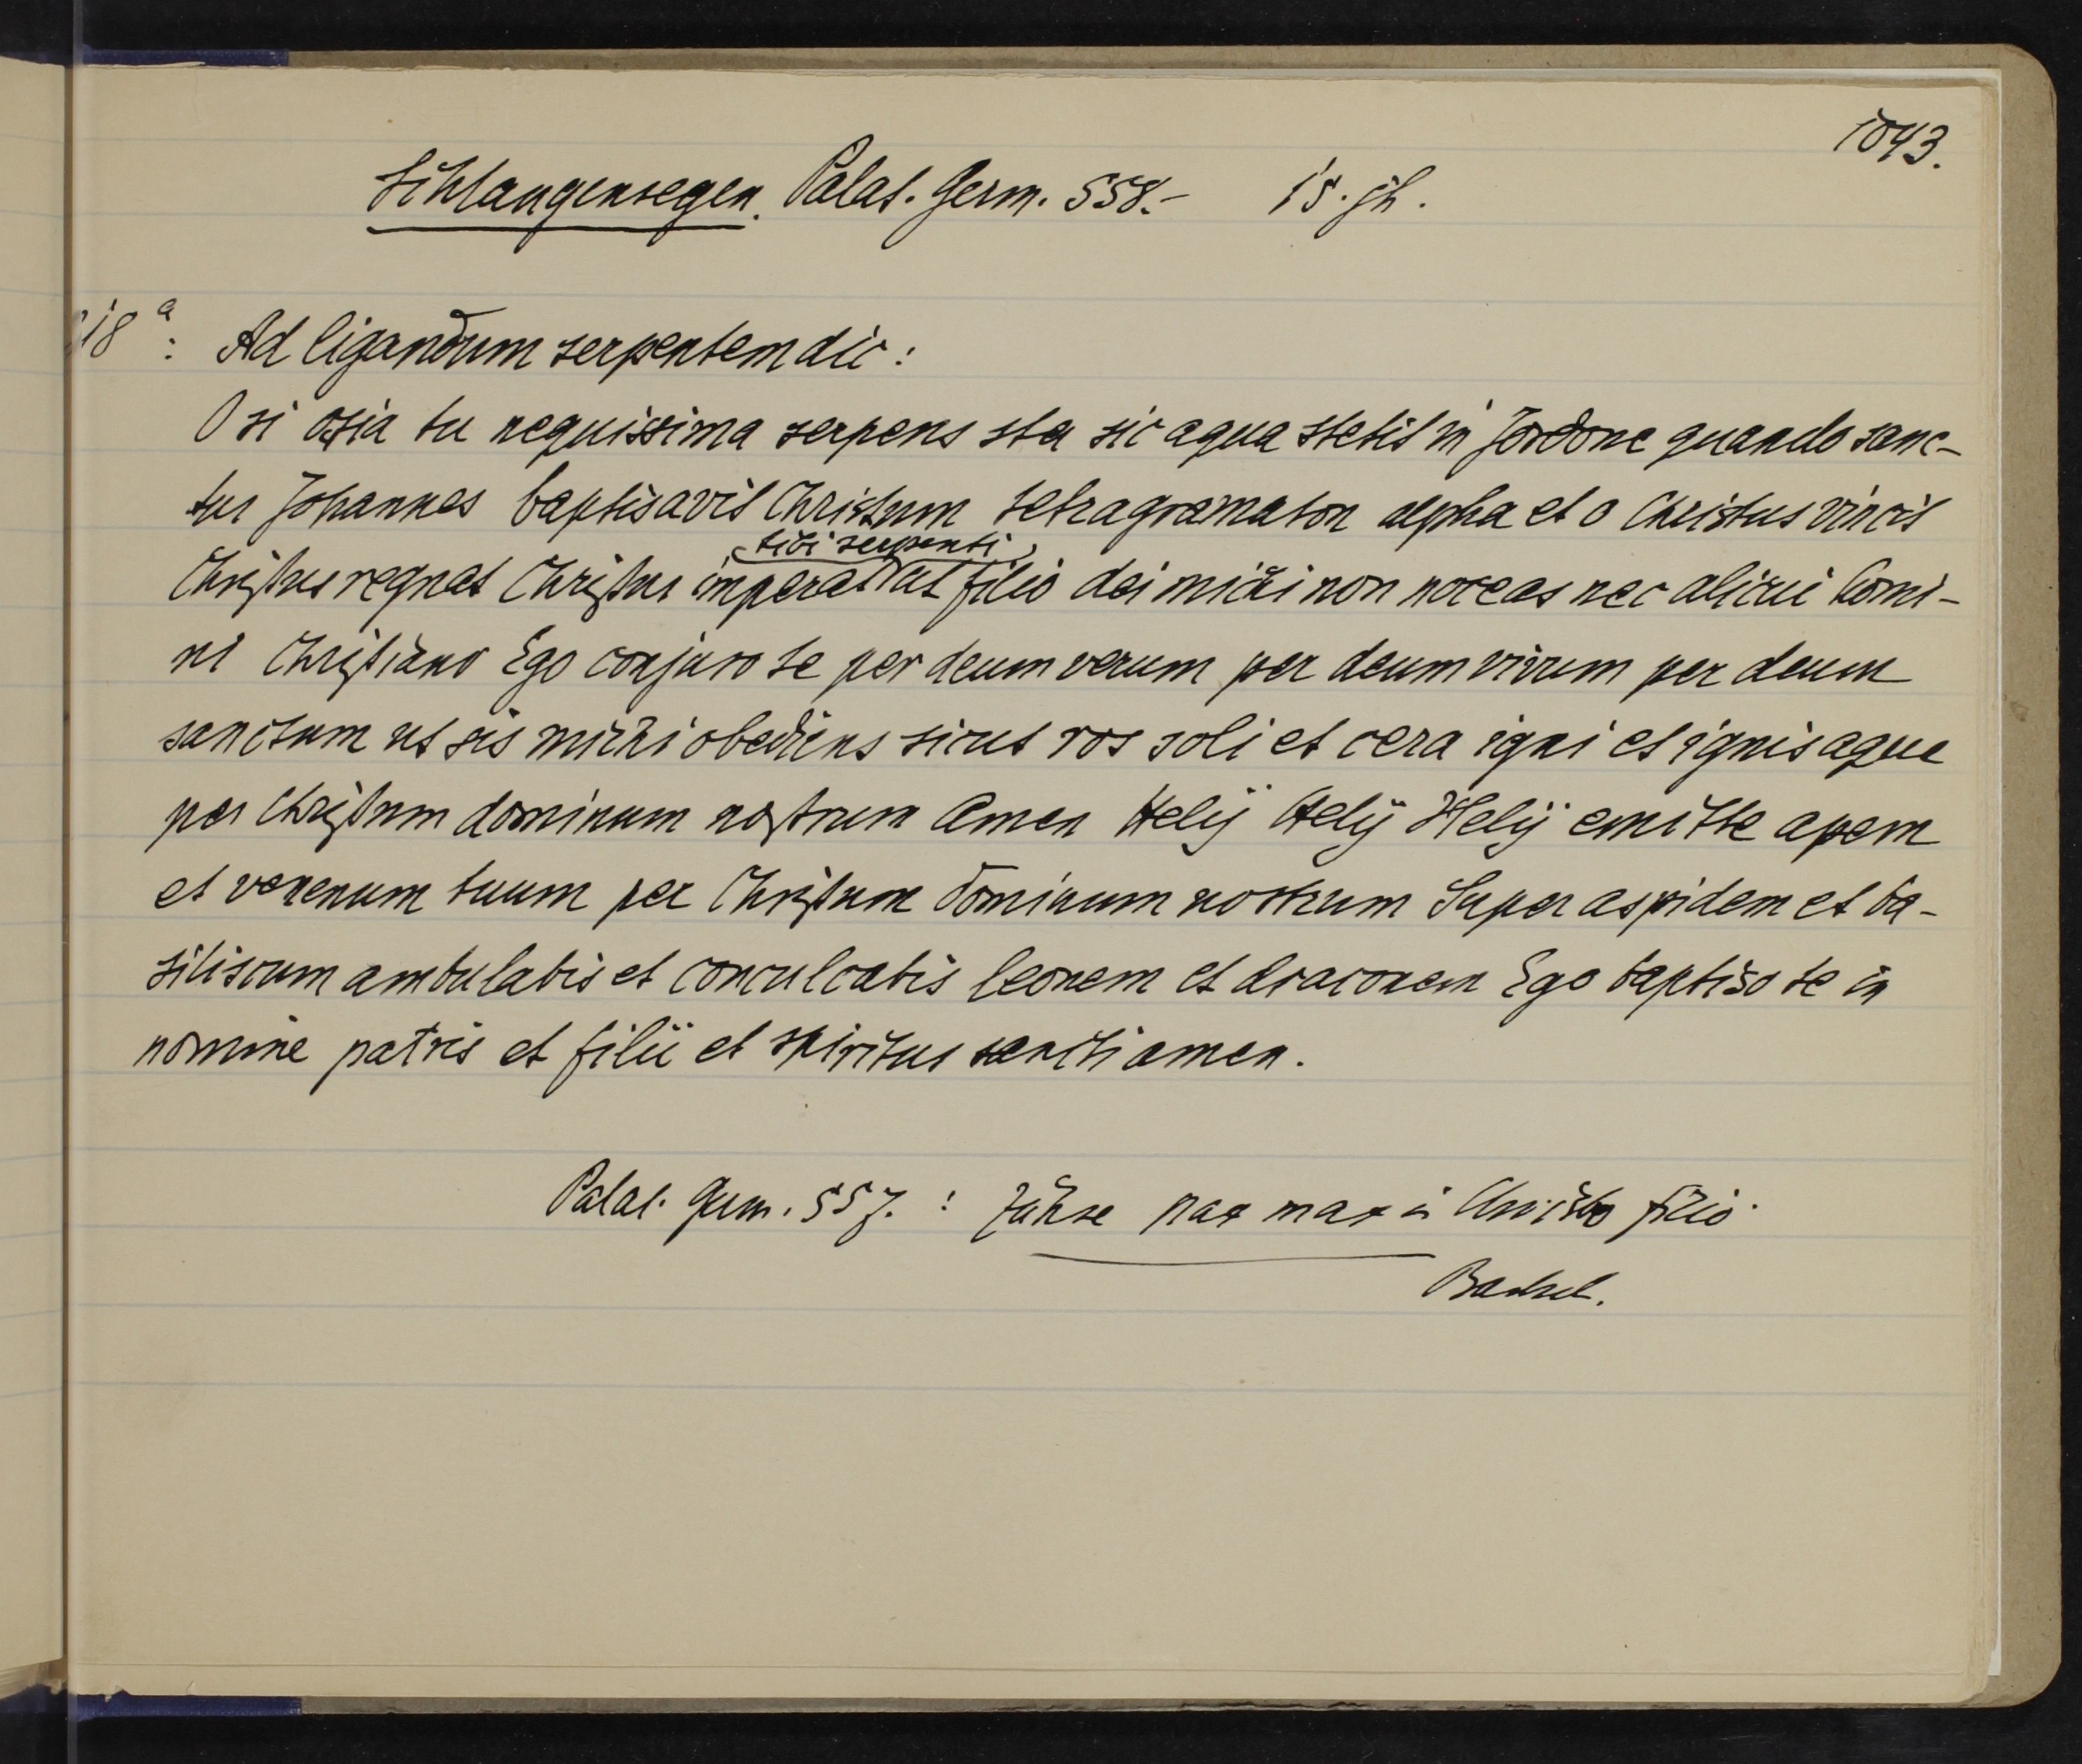 1043.
Schlangensegen. Palat. Germ. 558.- 15. jh.
18 a : Ad ligandum serpentem dic :
O si osia tu nequissima serpens sta sic aqua stetit in Jordone quando sanc-
tus Johannes baptisavit Christum tetragramaton alpha et o Christus vincit
tibi serpenti
Christus regnat Christus imperat ut filio dei michi non noceas nec alicui homi-
ni Christiano Ego conjuro te per deum verum per deum vivum per deum
sanctum ut sis michi obediens sicut ros soli et cera igni et ignis aque
per Christum dominum nostrum Amen Helÿ Helÿ Helÿ emitte apem
et venenum tuum per Christum dominum nostrum Super aspidem et ba-
siliscum ambulabis et conculcabis leonem et draconem Ego baptiso te in
nomine patris et filii et spiritus sancti amen.
Palat. Germ. 557. : Zähne pax max in Christo filio.